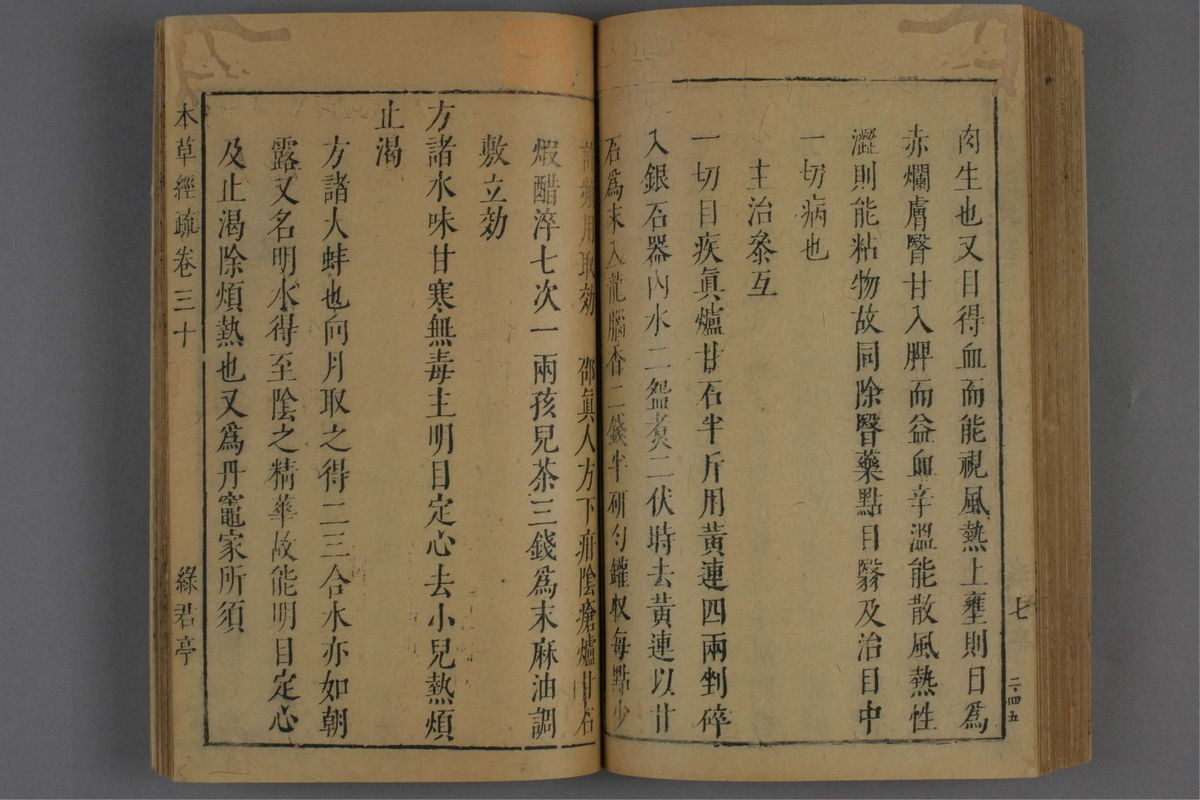 肉生也又目得血而能視風熱上壅則目爲
赤爛膚瞖甘入脾而益血辛溫能散風熱性
澀則能粘物故同除瞖藥點目翳及治目中
一切病也
主治叅互
一切目疾眞爐甘石半斤用黃連四兩剉碎
入銀石器內水二盌煑二伏時去黃連以甘
石爲末入龍腦香二錢半研勻鑵收每點少
許頻用取効　邵眞人方下疳陰瘡爐甘石
煅醋淬七次一兩孩兒茶三錢爲末麻油調
敷立効
方諸水味甘寒無毒主明目定心去小兒熱煩
止渴
方諸大蚌也向月取之得二三合水亦如朝
露又名明水得至陰之精華故能明目定心
及止渴除煩熱也又爲丹竈家所須
本草經疏卷三十
綠君亭
七
二·四五